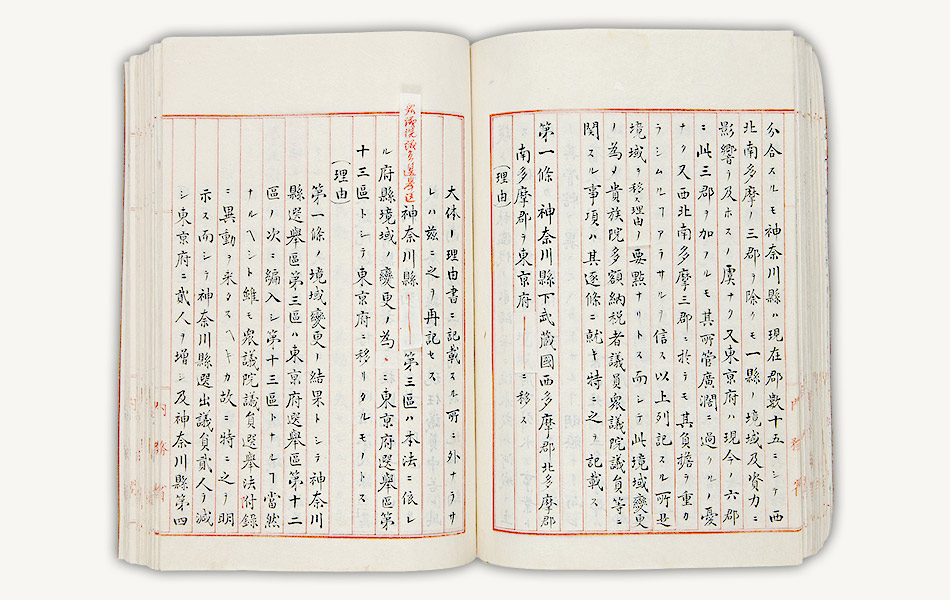 分合スルモ神奈川縣ハ現在郡數十五ニシテ西
北南多摩ノ三郡ヲ除クモ一縣ノ境域及資力ニ
影響ヲ及ホスノ虞ナク又東京府ハ現今ノ六郡
ニ此三郡ヲ加フルモ其所管廣濶ニ過クルノ憂
ナク又西北南多摩三郡ニ於テモ其負擔ヲ重カ
ラシムルニアラサルヲ信ス以上列記スル所是
境域ヲ移ス理由ノ要點ナリトス而シテ此境域變更
ノ為メ貴族院多額納税者議員衆議院議員等ニ
関スル事項ハ其逐條ニ就キ特ニ之ヲ記載ス
第一條 神奈川縣下武蔵國西多摩郡北多摩郡
南多摩郡ヲ東京府ニ移ス
(理由)
大体ノ理由書ニ記載スル所ニ外ナラサ
レハ茲ニ之ヲ再記セス
衆議院議員選挙区神奈川縣第三區ハ本法ニ依レ
ル府縣境域ノ變更ノ為ニ東京府選擧區第
十三區トシテ東京府ニ移リタルモノトス
(理由)
第一條ノ境域變更ノ結果トシテ神奈川
縣選擧區第三區ハ東京府選擧區第十二
區ノ次ニ編入シ第十三區トナルヿ當然
ナルヘシト雖モ衆議院議員選擧法附録
ニ異動ヲ来タスヘキカ故ニ特ニ之ヲ明
示ス而シテ神奈川縣選出議員貳人ヲ減
シ東京府ニ貳人ヲ増シ及神奈川縣第四